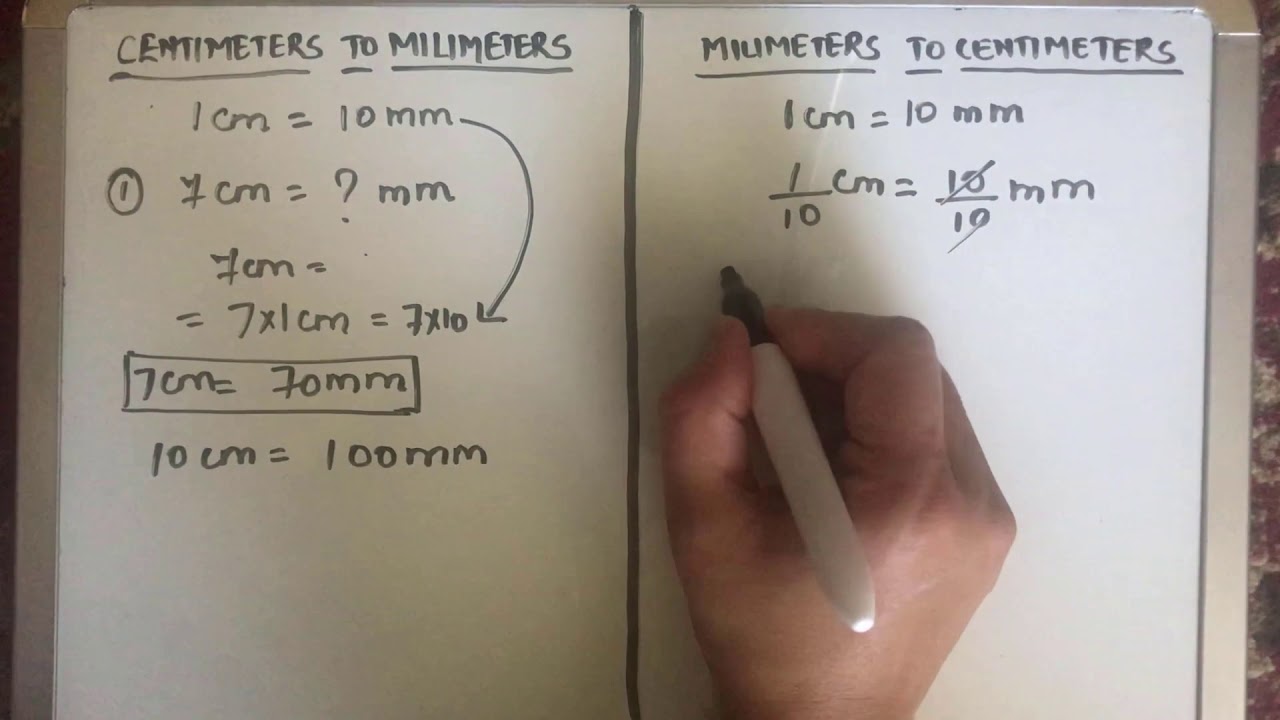 CENTIMETERS TO MILIMETERS
1cm = 10mm
① 7cm = ? mm
7cm =
= 7x1cm = 7x10
7cm = 70mm
10cm = 100mm
MILIMETERS TO CENTIMETERS
1cm = 10 mm
1/10 cm = 10/10 mm